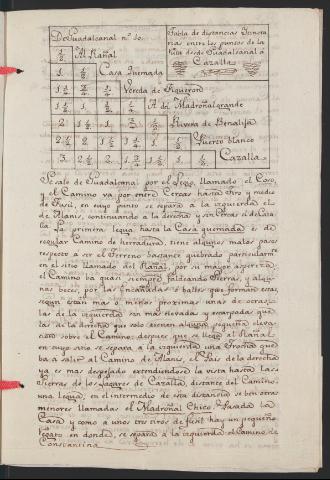 De Guadalcanal nº 10.
Tabla de distancias Itinera
rias entre los puntos de la
Ruta desde Guadalcanal á
Cazalla
1/2 Al Rañal
1 1/2 Casa Quemada
Vereda de Figueron
A. del Madroñal grande
Rivera de Benalija
Puerto blanco
Cazalla
Se sale de Guadalcanal por el llamado el Coso,
y el Camino va por entre Cercas hasta tiro y medio
de Fusil, en cuyo punto se separa á la izquierda el
de Alanis, continuando á la derecha y sin Cercas el de Caza
lla. La primera legua hasta la Casa quemada es de
regular Camino de herradura, tiene algunos malos pasos
respecto á ser el Terreno bastante quebrado particularmte
en el sitio llamado del Rañal, por su mayor aspereza;
el Camino ba quasi siempre faldeando Sierras, y algu-
nas veces, por las Encañadas ó balles que forman estas,
segun están mas ó menos proximas unas de otras;
las de la izquierda son mas elevadas y escarpadas que
las de la derecha que solo tienen alguna pequeña eleva-
cion sobre el Camino; despues que se llega al Rañal
en cuyo sitio se separa á la izquierda una Trocha que
ba á salir al Camino de Alanis, el Pais de la derecha
ya es mas despejado extendiendose la vista hasta las
Sierras de los Lagares de Cazalla, distante del Camino
una legua; en el intermedio de esta distancia se ben otras
menores llamadas el Madroñal Chico. Pasada la
Casa y como á unos tres tiros de fusil hay un pequeño
en donde, se separa á la izquierda el Camino de
Constantina